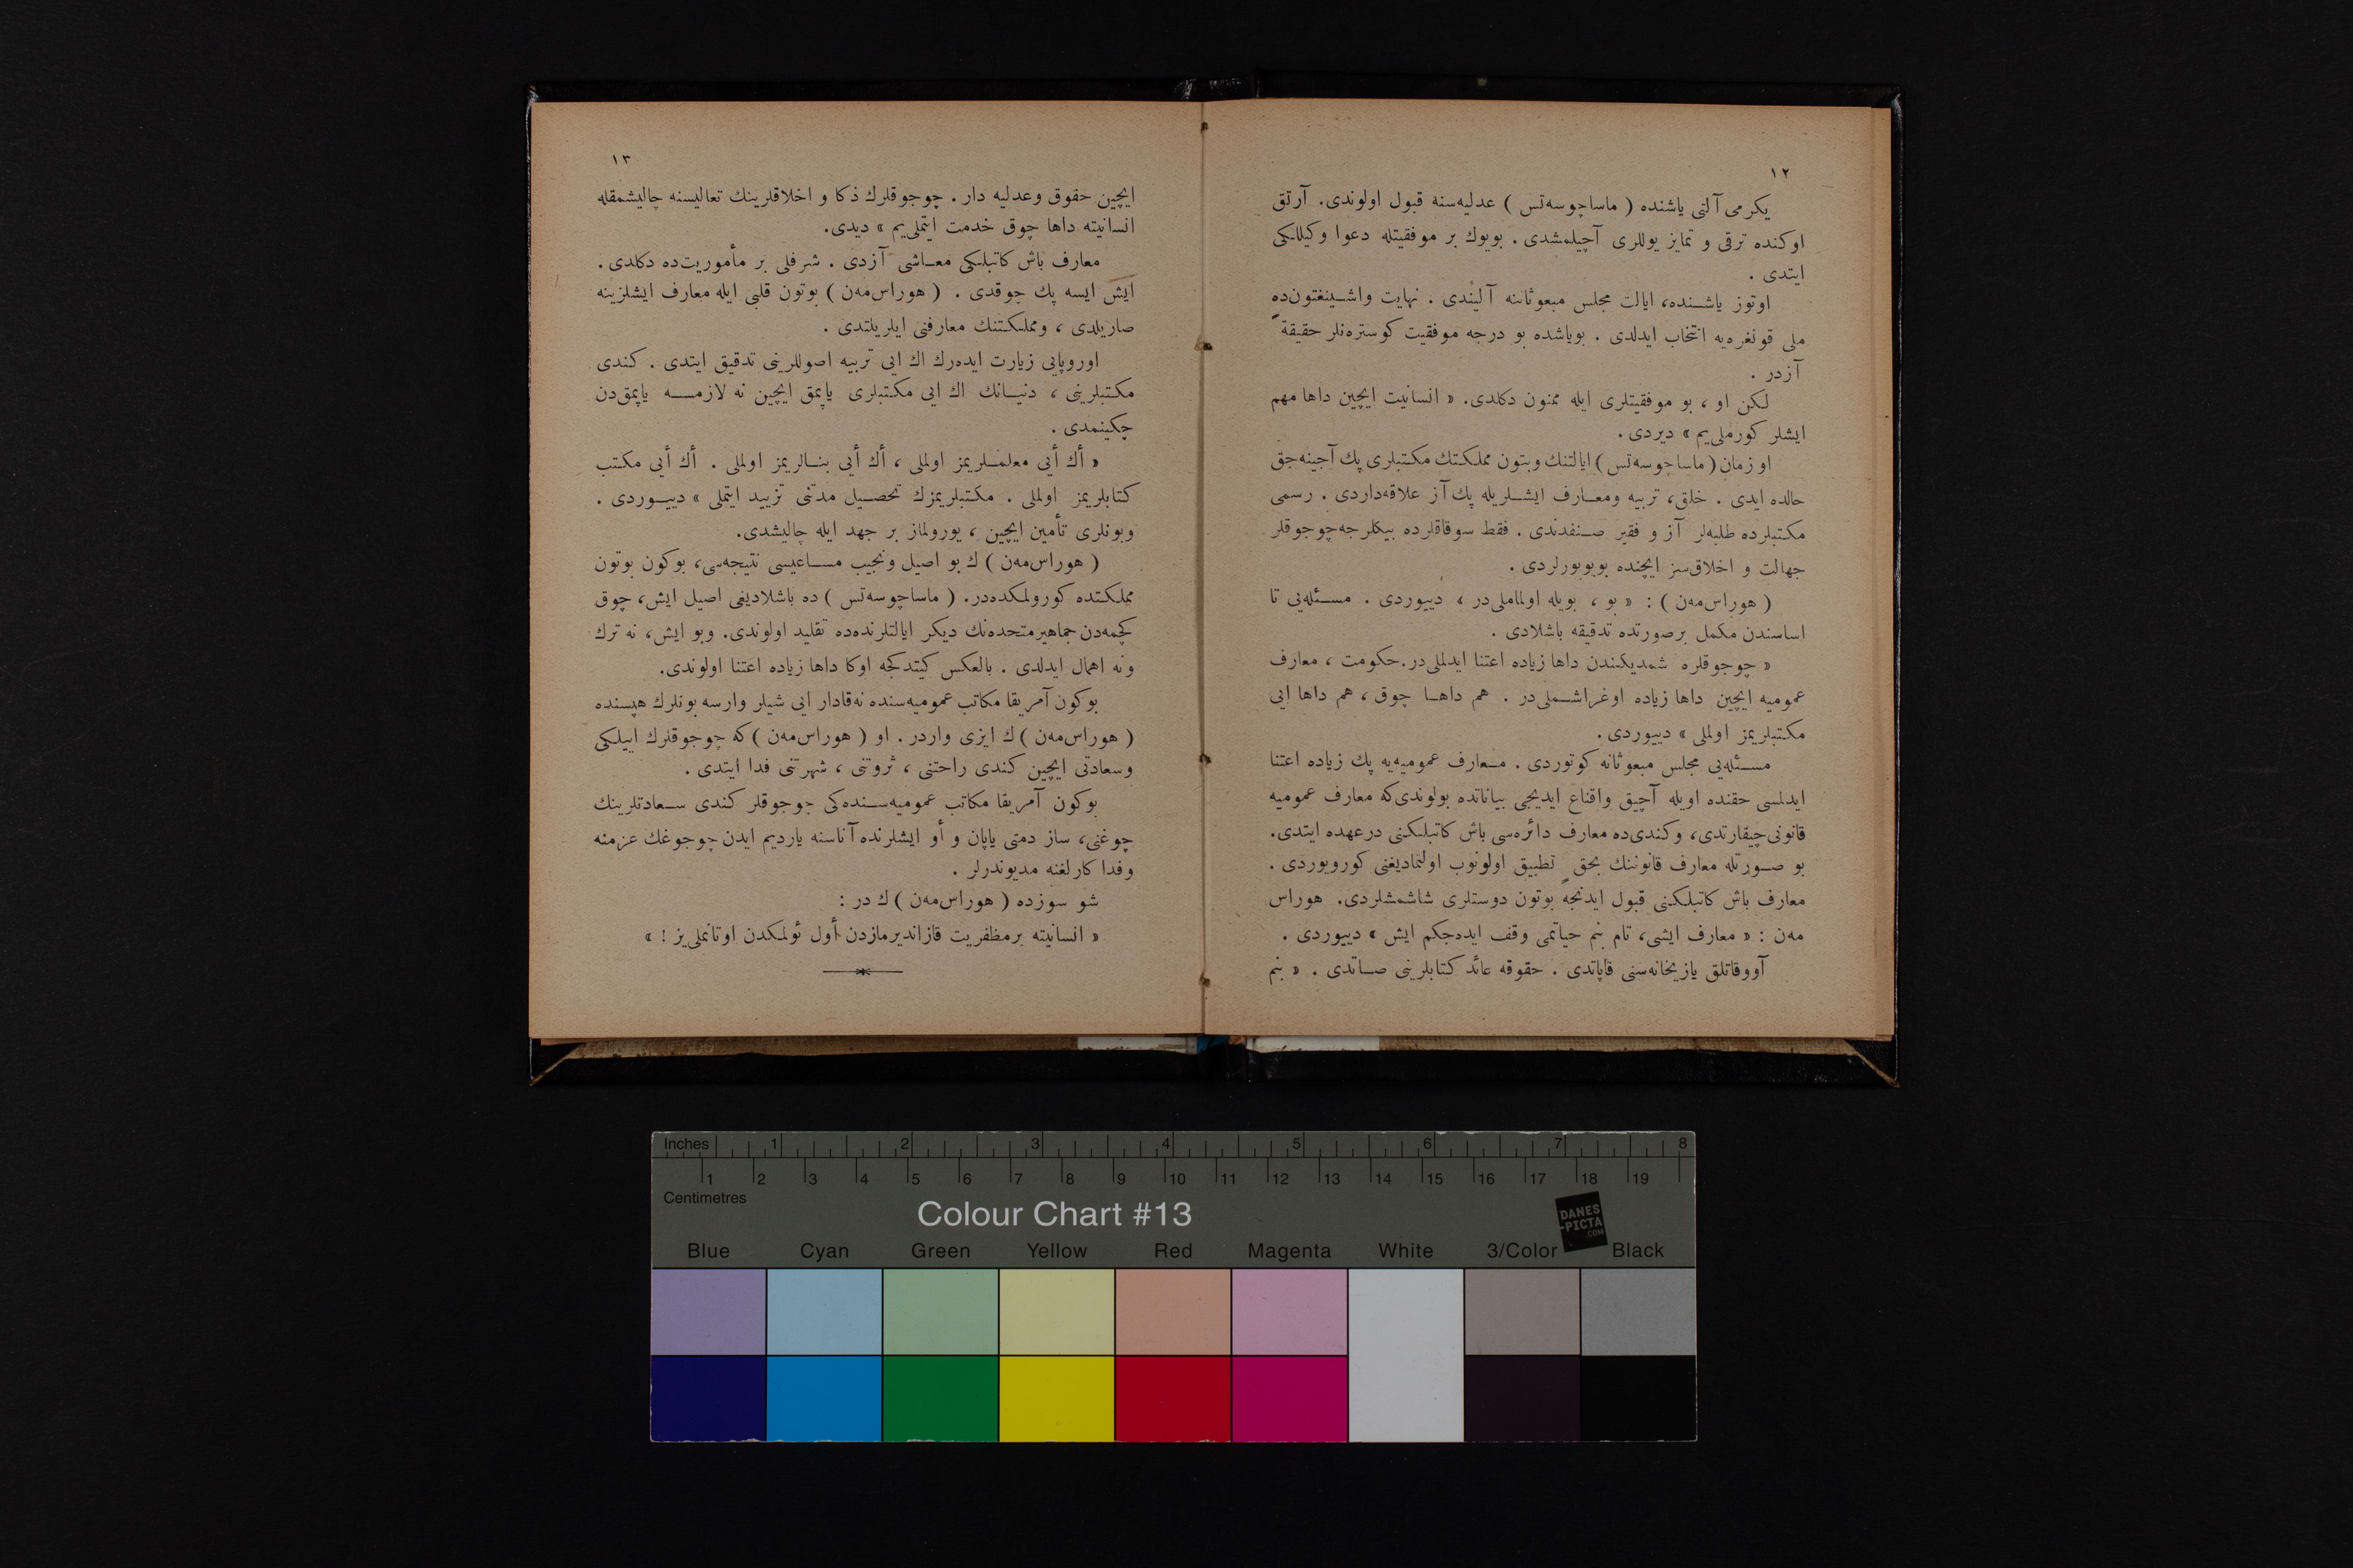 ١٢
يكرمی آلتی ياشنده ( ماساچوسه‌تس ) عدليه‌سنه قبول اولوندی. آرتق
اوكنده ترقی و تمايز يوللری آچيلمشدی . بويوك بر موفقيتله دعوا وكيللكی
ايتدی .
اوتوز ياشنده، ايالت مجلس مبعوثاننه آليندی . نهايت واشينغتون‌ده
ملی قونغره‌يه انتخاب ايدلدی . بوياشده بو درجه موفقيت كوستره‌نلر حقيقةً
آزدر .
لكن او ، بو موفقيتلری ايله ممنون دكلدی. « انسانيت ايچين داها مهم
ايشلر كورملی‌يم » ديردی .
او زمان ( ماساچوسه‌تس ) ايالتنك وبتون مملكتك مكتبلری پك آجينه‌جق
حالده ايدی . خلق، تربيه ومعارف ايشلريله پك آز علاقه‌داردی . رسمی
مكتبلرده طلبه‌لر آز و فقير صنفدندی . فقط سوقاقلرده بيكلرجه چوجوقلر
جهالت و اخلاق‌سز ايچنده بويويورلردی .
( هوراس‌مه‌ن ) : « بو ، بويله اولماملی‌در ، دييوردی . مسئله‌يی تا
اساسندن مكمل برصورتده تدقيقه باشلادی .
« چوجوقلره شمديكندن داها زياده اعتنا ايدلملی‌در. حكومت ، معارف
عموميه ايچين داها زياده اوغراشملی‌در . هم داها چوق ، هم داها ايی
مكتبلريمز اولملی » دييوردی .
مسئله‌يی مجلس مبعوثانه كوتوردی . معارف عموميه‌يه پك زياده اعتنا
ايدلمسی حقنده اويله آچيق واقناع ايديجی بياناتده بولوندی‌كه معارف عموميه
قانونی چيقارتدی، وكندی‌ده معارف دائره‌سی باش كاتبلكنی درعهده ايتدی.
بو صورتله معارف قانوننك بحقٍ تطبيق اولونوب اولنماديغنی كورويوردی .
معارف باش كاتبلكنی قبول ايدنجه بوتون دوستلری شاشمشلردی. هوراس
مه‌ن : « معارف ايشی، تام بنم حياتمی وقف ايده‌جكم ايش » دييوردی .
آووقاتلق يازيخانه‌سنی قاپاتدی . حقوقه عائد كتابلرينی صاتدی . « بنم
١٣
ايچين حقوق وعدليه دار . چوجوقلرك ذكا و اخلاقلرينك تعاليسنه چاليشمقله
انسانيته داها چوق خدمت ايتملی‌يم » ديدی.
معارف باش كاتبلكی معاشی آزدی . شرفلی بر مأموريت‌ده دكلدی .
ايش ايسه پك چوقدی . ( هوراس‌مه‌ن ) بوتون قلبی ايله معارف ايشلرينه
صاريلدی ، ومملكتنك معارفنی ايلريلتدی .
اوروپايی زيارت ايده‌رك اك ايی تربيه اصوللرينی تدقيق ايتدی . كندی
مكتبلرينی ، دنيانك اك ايی مكتبلری ياپمق ايچين نه لازمسه ياپمق‌دن
چكينمدی .
« أك أيی معلملريمز اولملی ، أك أيی بنالريمز اولملی . أك أيی مكتب
كتابلريمز اولملی . مكتبلريمزك تحصيل مدتنی تزييد ايتملی » دييوردی .
وبونلری تأمين ايچين ، يورولماز بر جهد ايله چاليشدی.
( هوراس‌مه‌ن ) ك بو اصيل ونجيب مساعيسی نتيجه‌سی، بوكون بوتون
مملكتده كورولمكده‌در. ( ماساچوسه‌تس ) ده باشلاديغی اصيل ايش، چوق
كچمه‌دن جماهير متحده‌نك ديكر ايالتلرنده‌ده تقليد اولوندی. وبو ايش، نه ترك
ونه اهمال ايدلدی . بالعكس كيتدكجه اوكا داها زياده اعتنا اولوندی.
بوكون آمريقا مكاتب عموميه‌سنده نه‌قادار ايی شيلر وارسه بونلرك هپسنده
( هوراس‌مه‌ن ) ك ايزی واردر . او ( هوراس‌مه‌ن ) كه چوجوقلرك اييلكی
وسعادتی ايچين كندی راحتنی ، ثروتنی ، شهرتنی فدا ايتدی .
بوكون آمريقا مكاتب عموميه‌سنده‌كی چوجوقلر كندی سعادتلرينك
چوغنی، ساز دمتی ياپان و أو ايشلرنده آناسنه يارديم ايدن چوجوغك عزمنه
وفدا كارلغنه مديوندرلر .
شو سوزده ( هوراس‌مه‌ن ) ك در :
« انسانيته برمظفريت قازانديرمازدن أول ئولمكدن اوتانملی‌يز ! »
Inches 1 2 3 4 5 6 7 8
1 2 3 4 5 6 7 8 9 10 11 12 13 14 15 16 17 18 19
Centimetres
Colour Chart #13
DANES
-PICTA
.COM
Blue Cyan Green Yellow Red Magenta White 3/Color Black